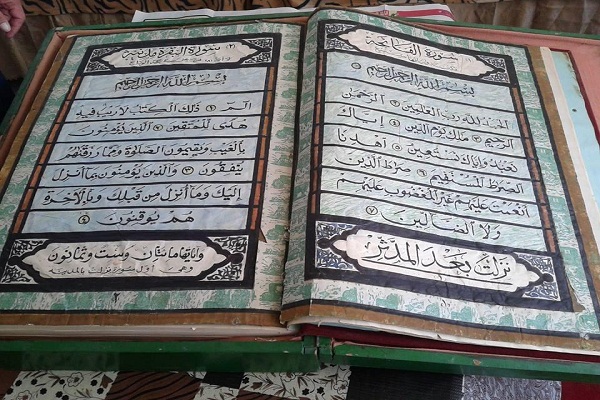 سورة الفاتحة
بسم الله الرحمن الرحيم ١
الحمد لله رب العلمين ٢ الرحمن
الرحيم ٣ ملك يوم الدين ٤ إياك
نعبد وإياك نستعين ٥ اهدنا
الصرط المستقيم ٦ صرط الذين
أنعمت عليهم غير المغضوب عليهم
ولا الضالين ٧
نزلت بعد المدثر
(٢) سورة البقرة مدنية
بسم الله الرحمن الرحيم
الم ١ ذلك الكتب لا ريب فيه
هدى للمتقين ٢ الذين يؤمنون
بالغيب ويقيمون الصلوة ومما رزقنهم
ينفقون ٣ والذين يؤمنون بما أنزل
إليك وما أنزل من قبلك وبالآخرة
هم يوقنون ٤
وآياتها مائتان وست وثمانون
وهى أول سورة نزلت بالمدينة
٢